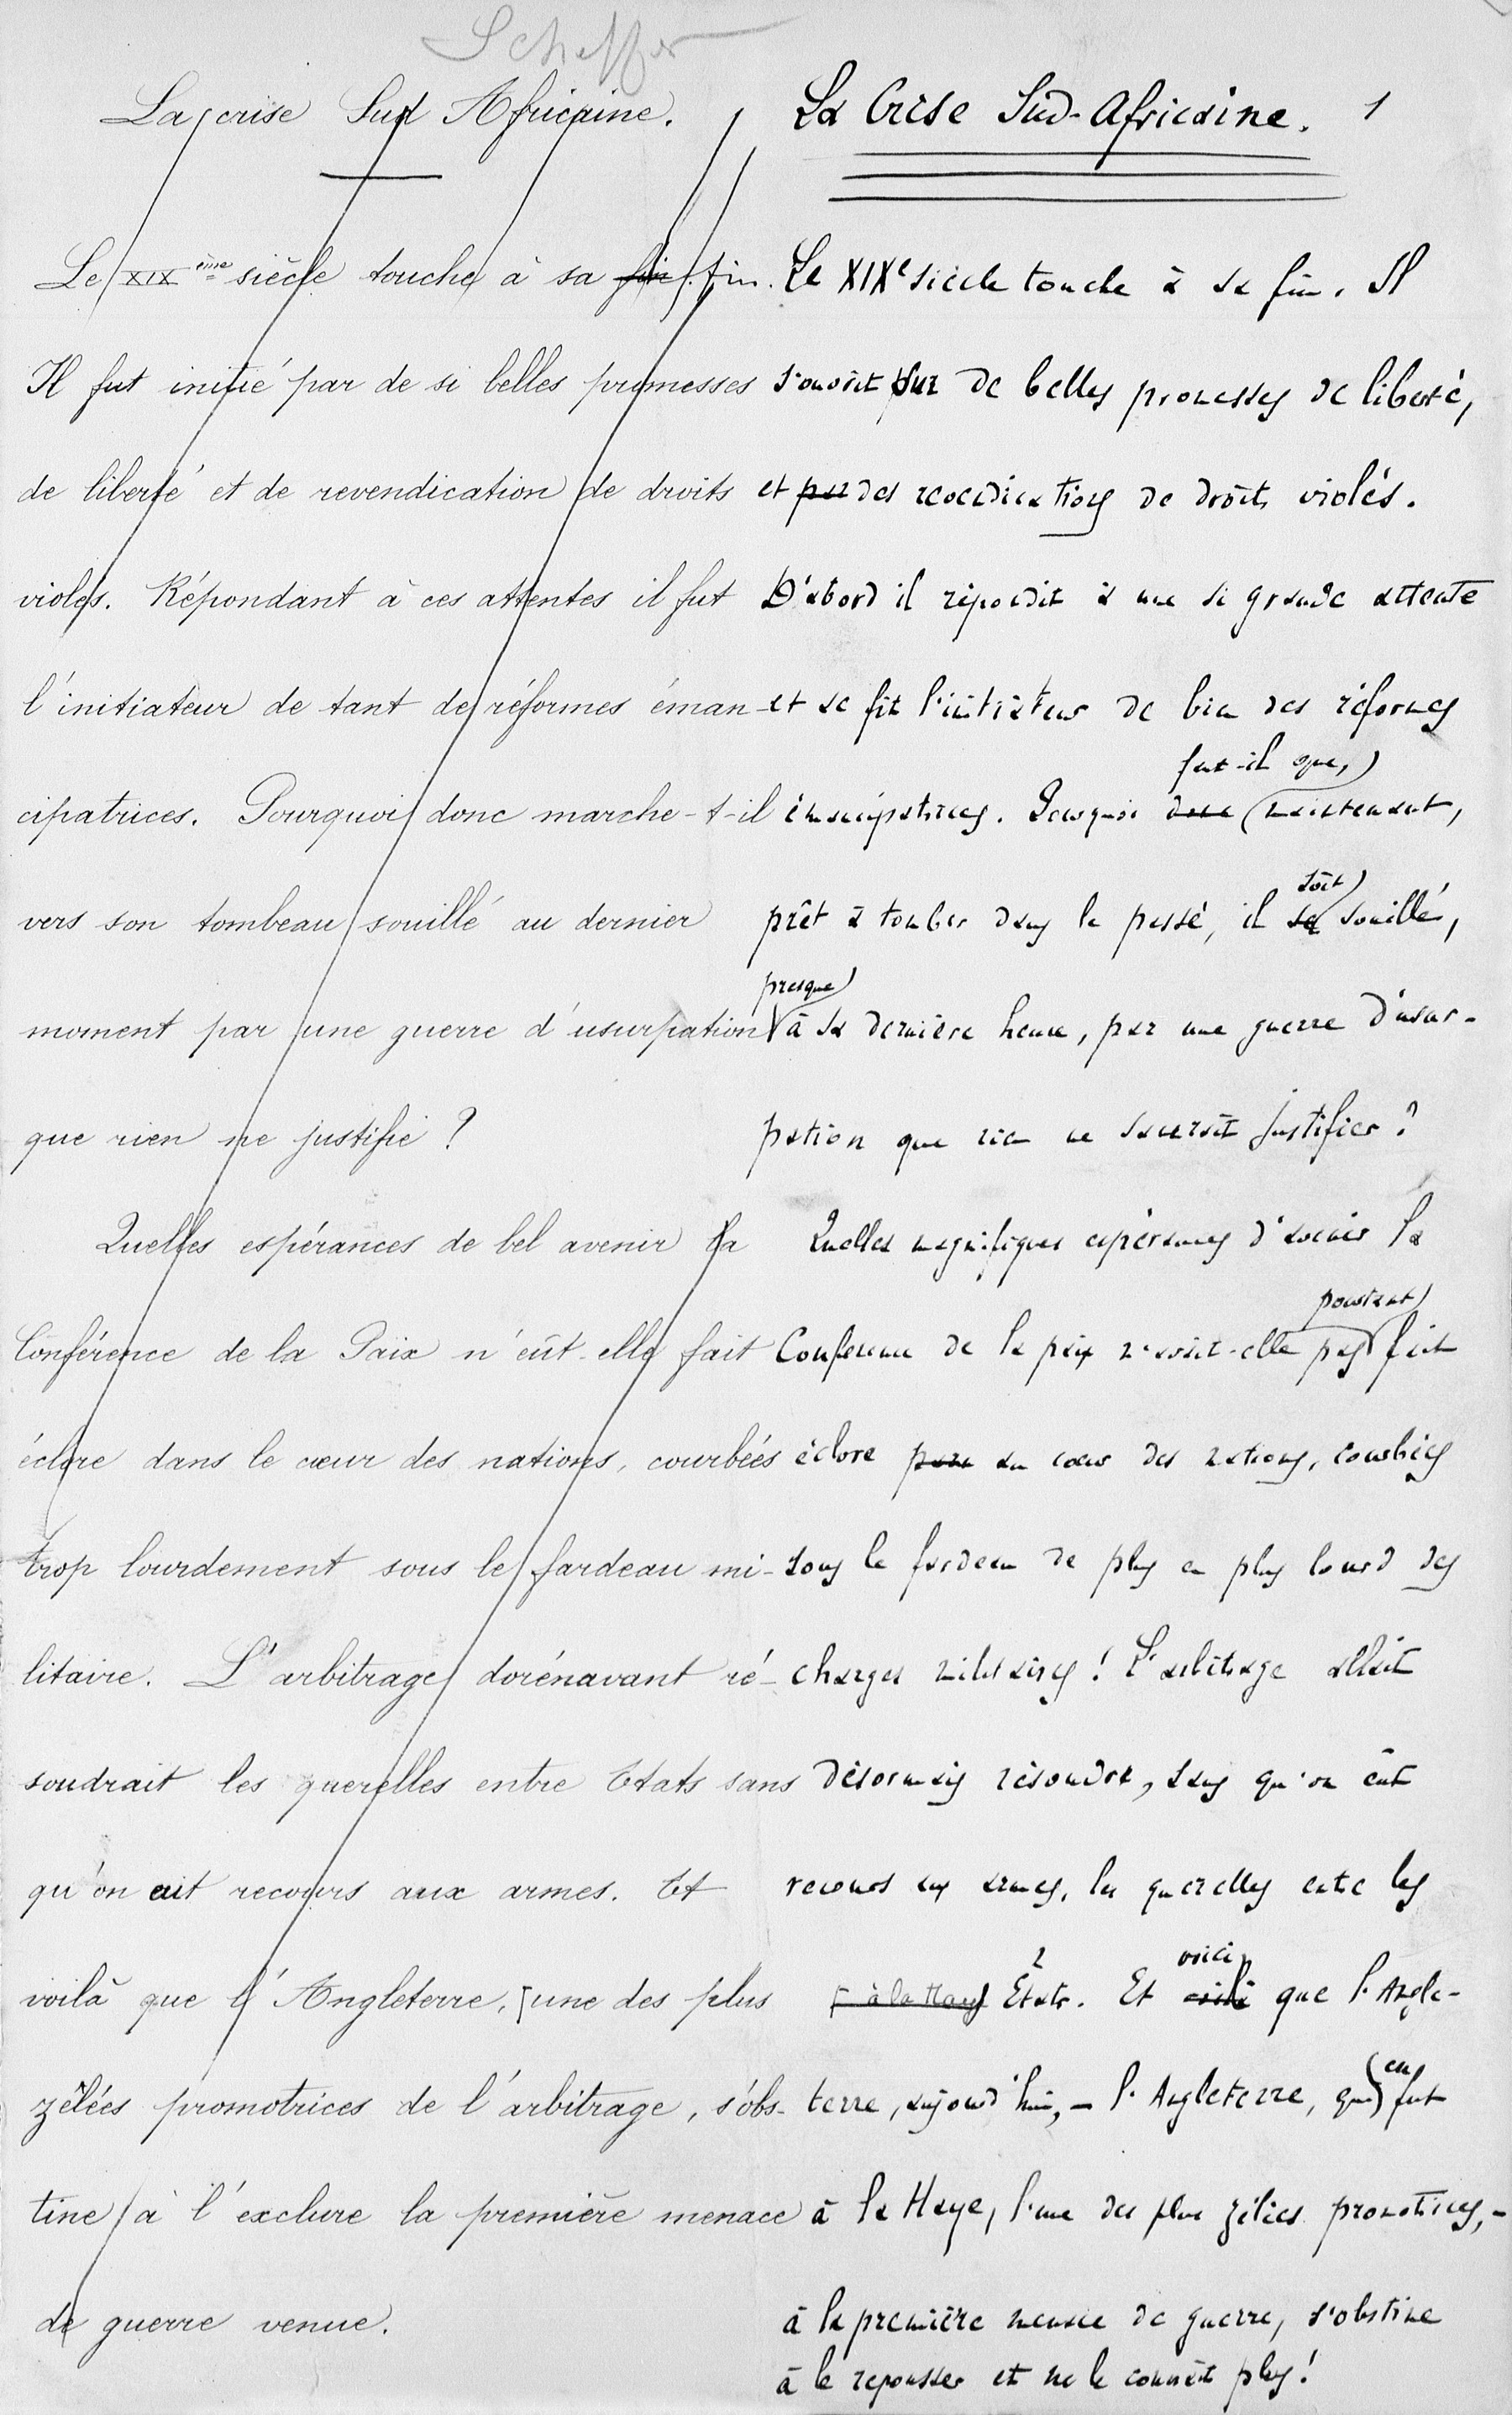 Scheffer
La crise Sud Africaine.
Le XIX ème siècle touche à sa fin. fin.
Il fut initié par de si belles promesses
de liberté et de revendication de droits
violés. Répondant à ces attentes il fut
l'initiateur de tant de réformes éman-
cipatrices. Pourquoi donc marche-t-il
vers son tombeau souillé au dernier
moment par une guerre d'usurpation
que rien ne justifie ?
Quelles espérances de bel avenir la
Conférence de la Paix n'eût-elle fait
éclore dans le cœur des nations, courbées
trop lourdement sous le fardeau mi-
litaire. L'arbitrage dorénavant ré-
soudrait les querelles entre Etats sans
qu'on ait recours aux armes. Et
voilà que l'Angleterre, [une des plus
zêlées promotrices de l'arbitrage, s'obs-
tine à l'exclure la première menace
de guerre venue.
La Crise Sud-Africaine. 1
Le XIXe siècle touche à sa fin. Il
s'ouvrit sur de belles promesses de liberté,
et par des revendications de droits violés.
D'abord il répondit à une si grande attente
et se fit l'initiateur de bien des réformes
faut-il que,
émancipatrices. Pourquoi donc maintenant,
soit
prêt à tomber dans le passé, il se souillé,
presque
à sa dernière heure, par une guerre d'usur-
pation que rien ne saurait justifier ?
Quelles magnifiques espérances d'avenir la
pourtant
Conférence de la paix n'avait-elle pas fait
éclore au cœur des nations, courbées
sous le fardeau de plus en plus lourd des
charges militaires ! L'arbitrage allait
désormais résoudre, sans qu'on eût
recours aux armes, les querelles entre les
2 voici
[à la Haye] États. Et voilà que l'Angle-
en
terre, aujourd'hui, - l'Angleterre, qui fut
à la Haye, l'une des plus zélées promotrices, -
à la première menace de guerre, s'obstine
à le repousser et ne le connaît plus !